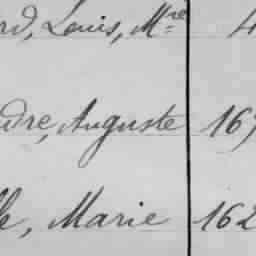 rd, Louis, Mre 4
dre, Auguste 167
le, Marie 162